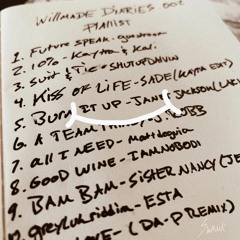 WILLMADE DIARIES 002
PLAYLIST
1. FUTURE SPEAK -
2. 10% - KAYTRA & KALI
3. SUIT & TIE - SHUTUPDAVIN
4. KISS OF LIFE - SADE (KAYTRA EDIT)
5. BURN IT UP - JANET JACKSON
6. A TEAM
7. ALL I NEED -
8. GOOD WINE - IAMNOBODI
9. BAM BAM - SISTER NANCY
10. RIDDIM - ESTA
LOVE - (DA-P REMIX)